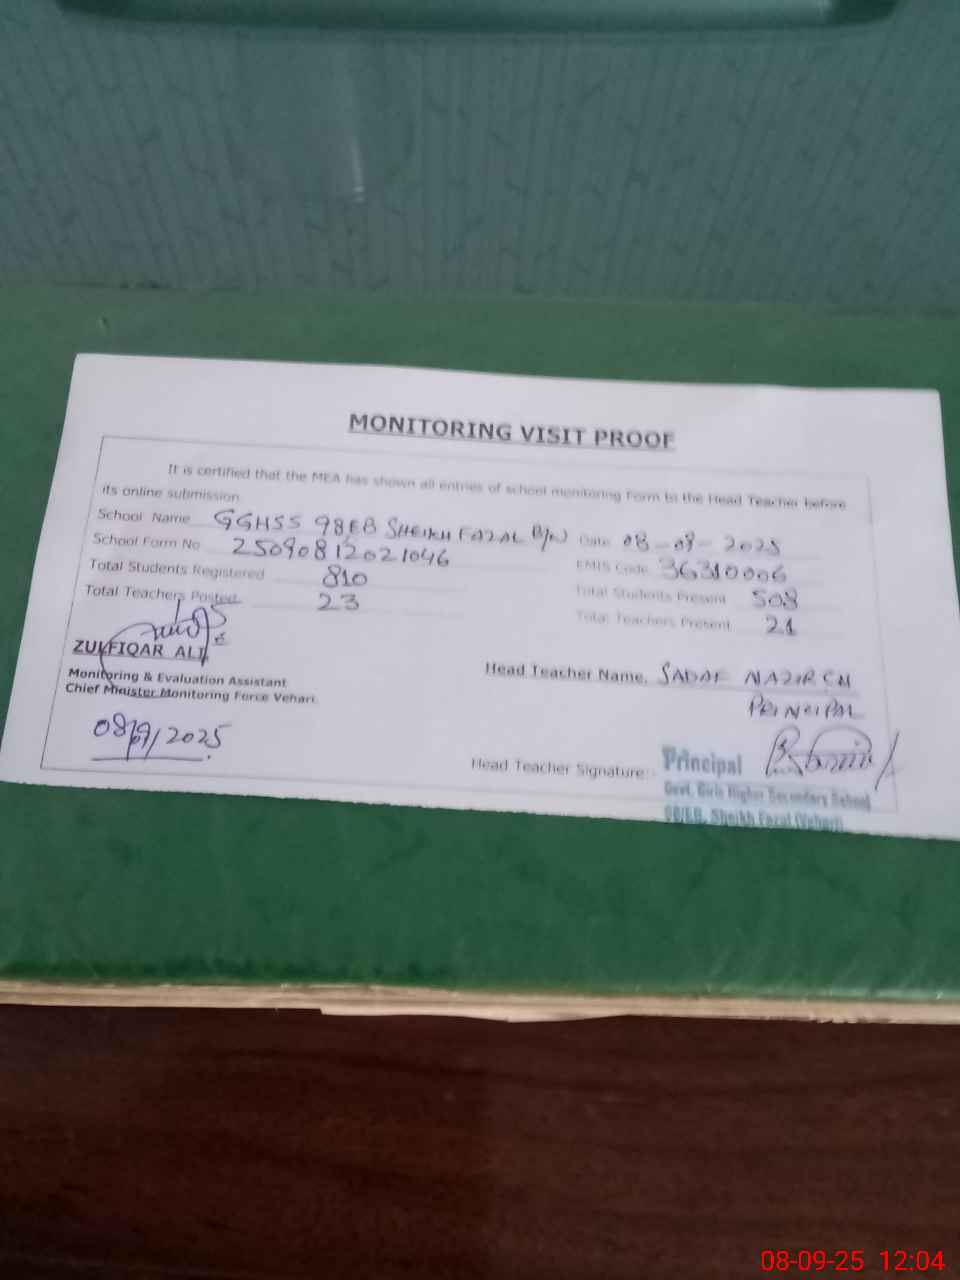 MONITORING VISIT PROOF
It is certified that the MEA has shown all entries of school monitoring Form to the Head Teacher before
its online submission
School Name GGHSS 98EB SHEIKH FAZAL B/W Date 08-09-2025
School Form No 2509081202 1046 EMIS Code 36310006
Total Students Registered 810 Total Students Present 508
Total Teachers Posted 23 Total Teachers Present 21
ZULFIQAR ALI
Monitoring & Evaluation Assistant
Chief Minister Monitoring Force Vehari.
08/09/2025
Head Teacher Name. SADAF NAZIR CH
PRINCIPAL
Head Teacher Signature:-
Principal
Govt. Girls Higher Secondary School
98/EB, Sheikh Fazal (Vehari)
08-09-25 12:04